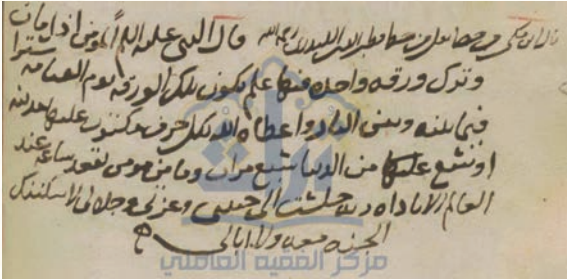 قال النبي عليه السلام المؤمن اذا مات
وترك ورقه واحده عليها علم تكون تلك الورقه يوم القيامه سترا
فيما بينه وبين النار واعطاه الله بكل حرف مكتوب عليها مدينه
اوسع من الدنيا سبع مرات وما من مومن يقعد ساعه عند
العالم الا ناداه ربه جلست الى حبيبي وعزتي وجلالي لاسكننك
الجنه معه ولا ابالي
مركز الفقيه العاملي